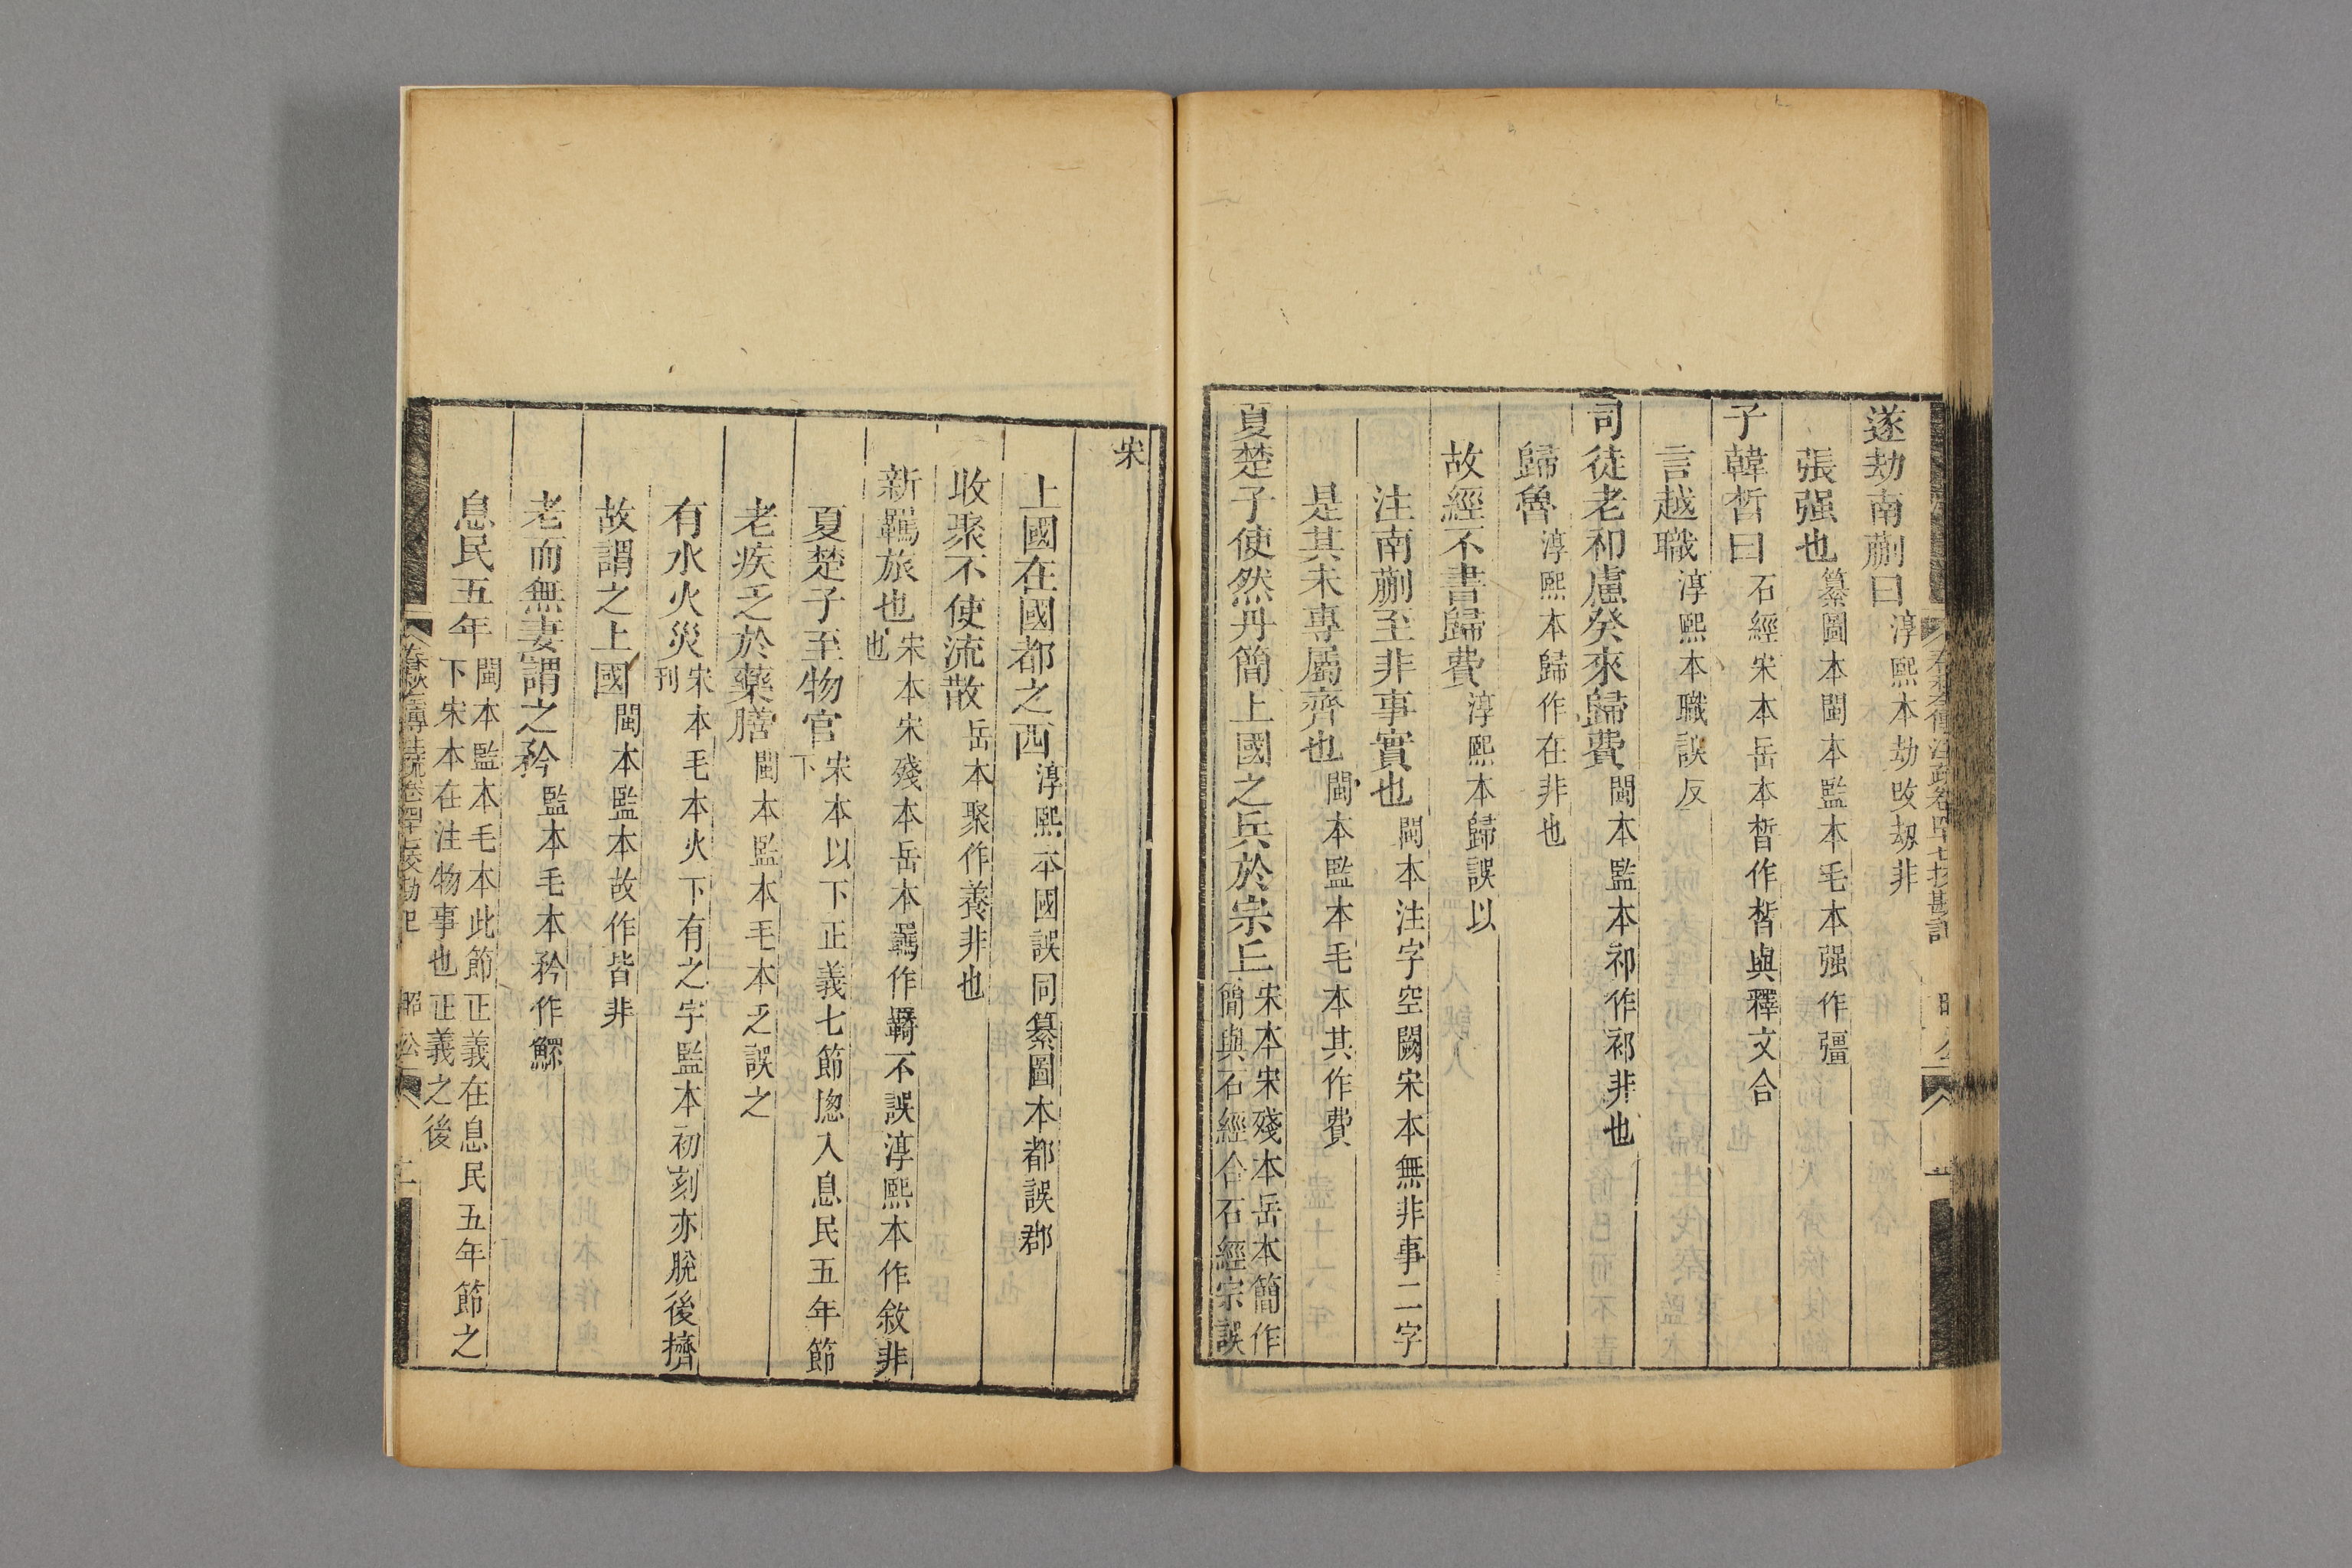 遂劫南蒯曰淳熙本劫改刼非
張强也纂圖本閩本監本毛本强作彊
子韓晳曰石經宋本岳本晳作皙與釋文合
言越職淳熙本職誤反
司徒老祁慮癸來歸費閩本監本祁作祁非也
歸魯淳熙本歸作在非也
故經不書歸費淳熙本歸誤以
注南蒯至非事實也閩本注字空闕宋本無非事二字
是其未專屬齊也閩本監本毛本其作費
夏楚子使然丹簡上國之兵於宗丘宋本宋殘本岳本簡作
簡與石經合石經宗誤
宋
上國在國都之西淳熙本國誤同纂圖本都誤郡
收聚不使流散岳本聚作養非也
新羈旅也宋本宋殘本岳本羈作羇不誤淳熙本作敘非
也
夏楚子至物官宋本以下正義七節揔入息民五年節
下
老疾乏於藥膳閩本監本毛本乏誤之
有水火災宋本毛本火下有之字監本初刻亦脫後擠
刊
故謂之上國閩本監本故作皆非
老而無妻謂之矜監本毛本矜作鰥
息民五年閩本監本毛本此節正義在息民五年節之
下宋本在注物事也正義之後
昭公